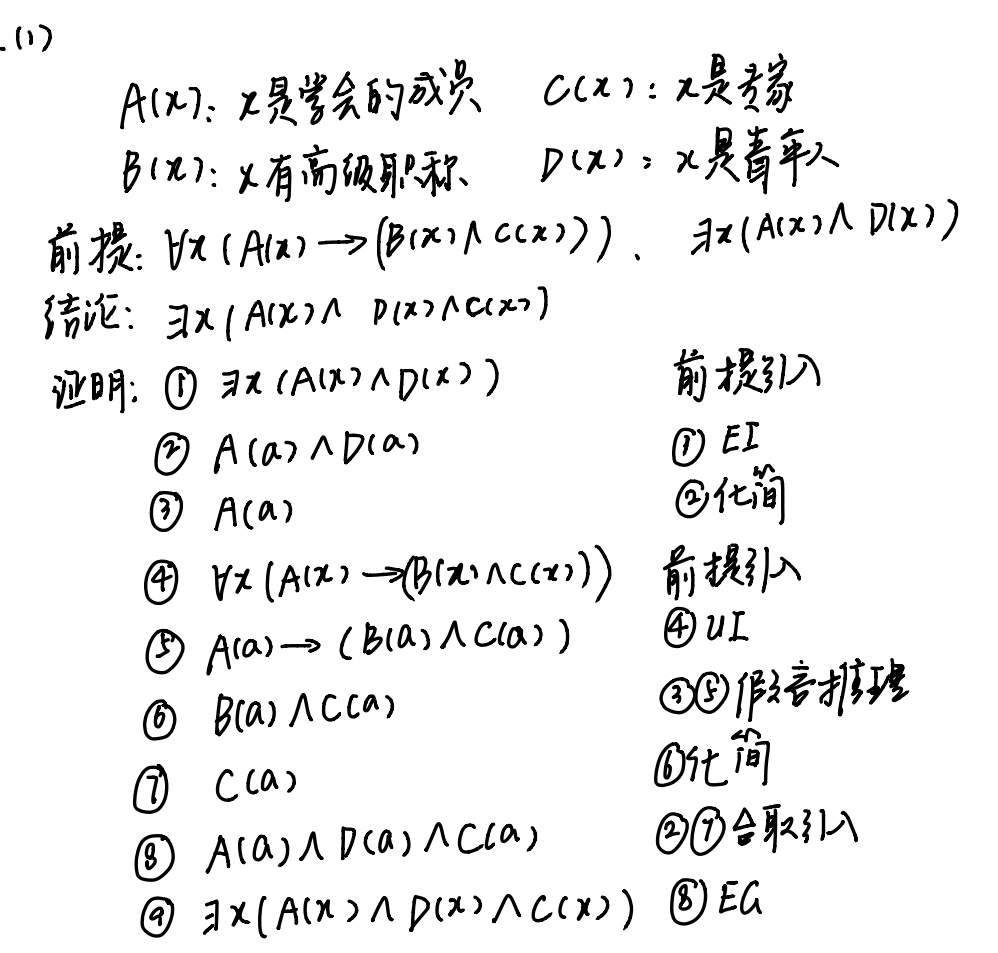 (1)
A(x): x是学会的成员 C(x): x是专家
B(x): x有高级职称 D(x): x是青年人
前提: ∀x(A(x)→(B(x)∧C(x)))、∃x(A(x)∧D(x))
结论: ∃x(A(x)∧D(x)∧C(x))
证明: ① ∃x(A(x)∧D(x)) 前提引入
② A(a)∧D(a) ① EI
③ A(a) ②化简
④ ∀x(A(x)→(B(x)∧C(x))) 前提引入
⑤ A(a)→(B(a)∧C(a)) ④ UI
⑥ B(a)∧C(a) ③⑤假言推理
⑦ C(a) ⑥化简
⑧ A(a)∧D(a)∧C(a) ②⑦合取引入
⑨ ∃x(A(x)∧D(x)∧C(x)) ⑧ EG